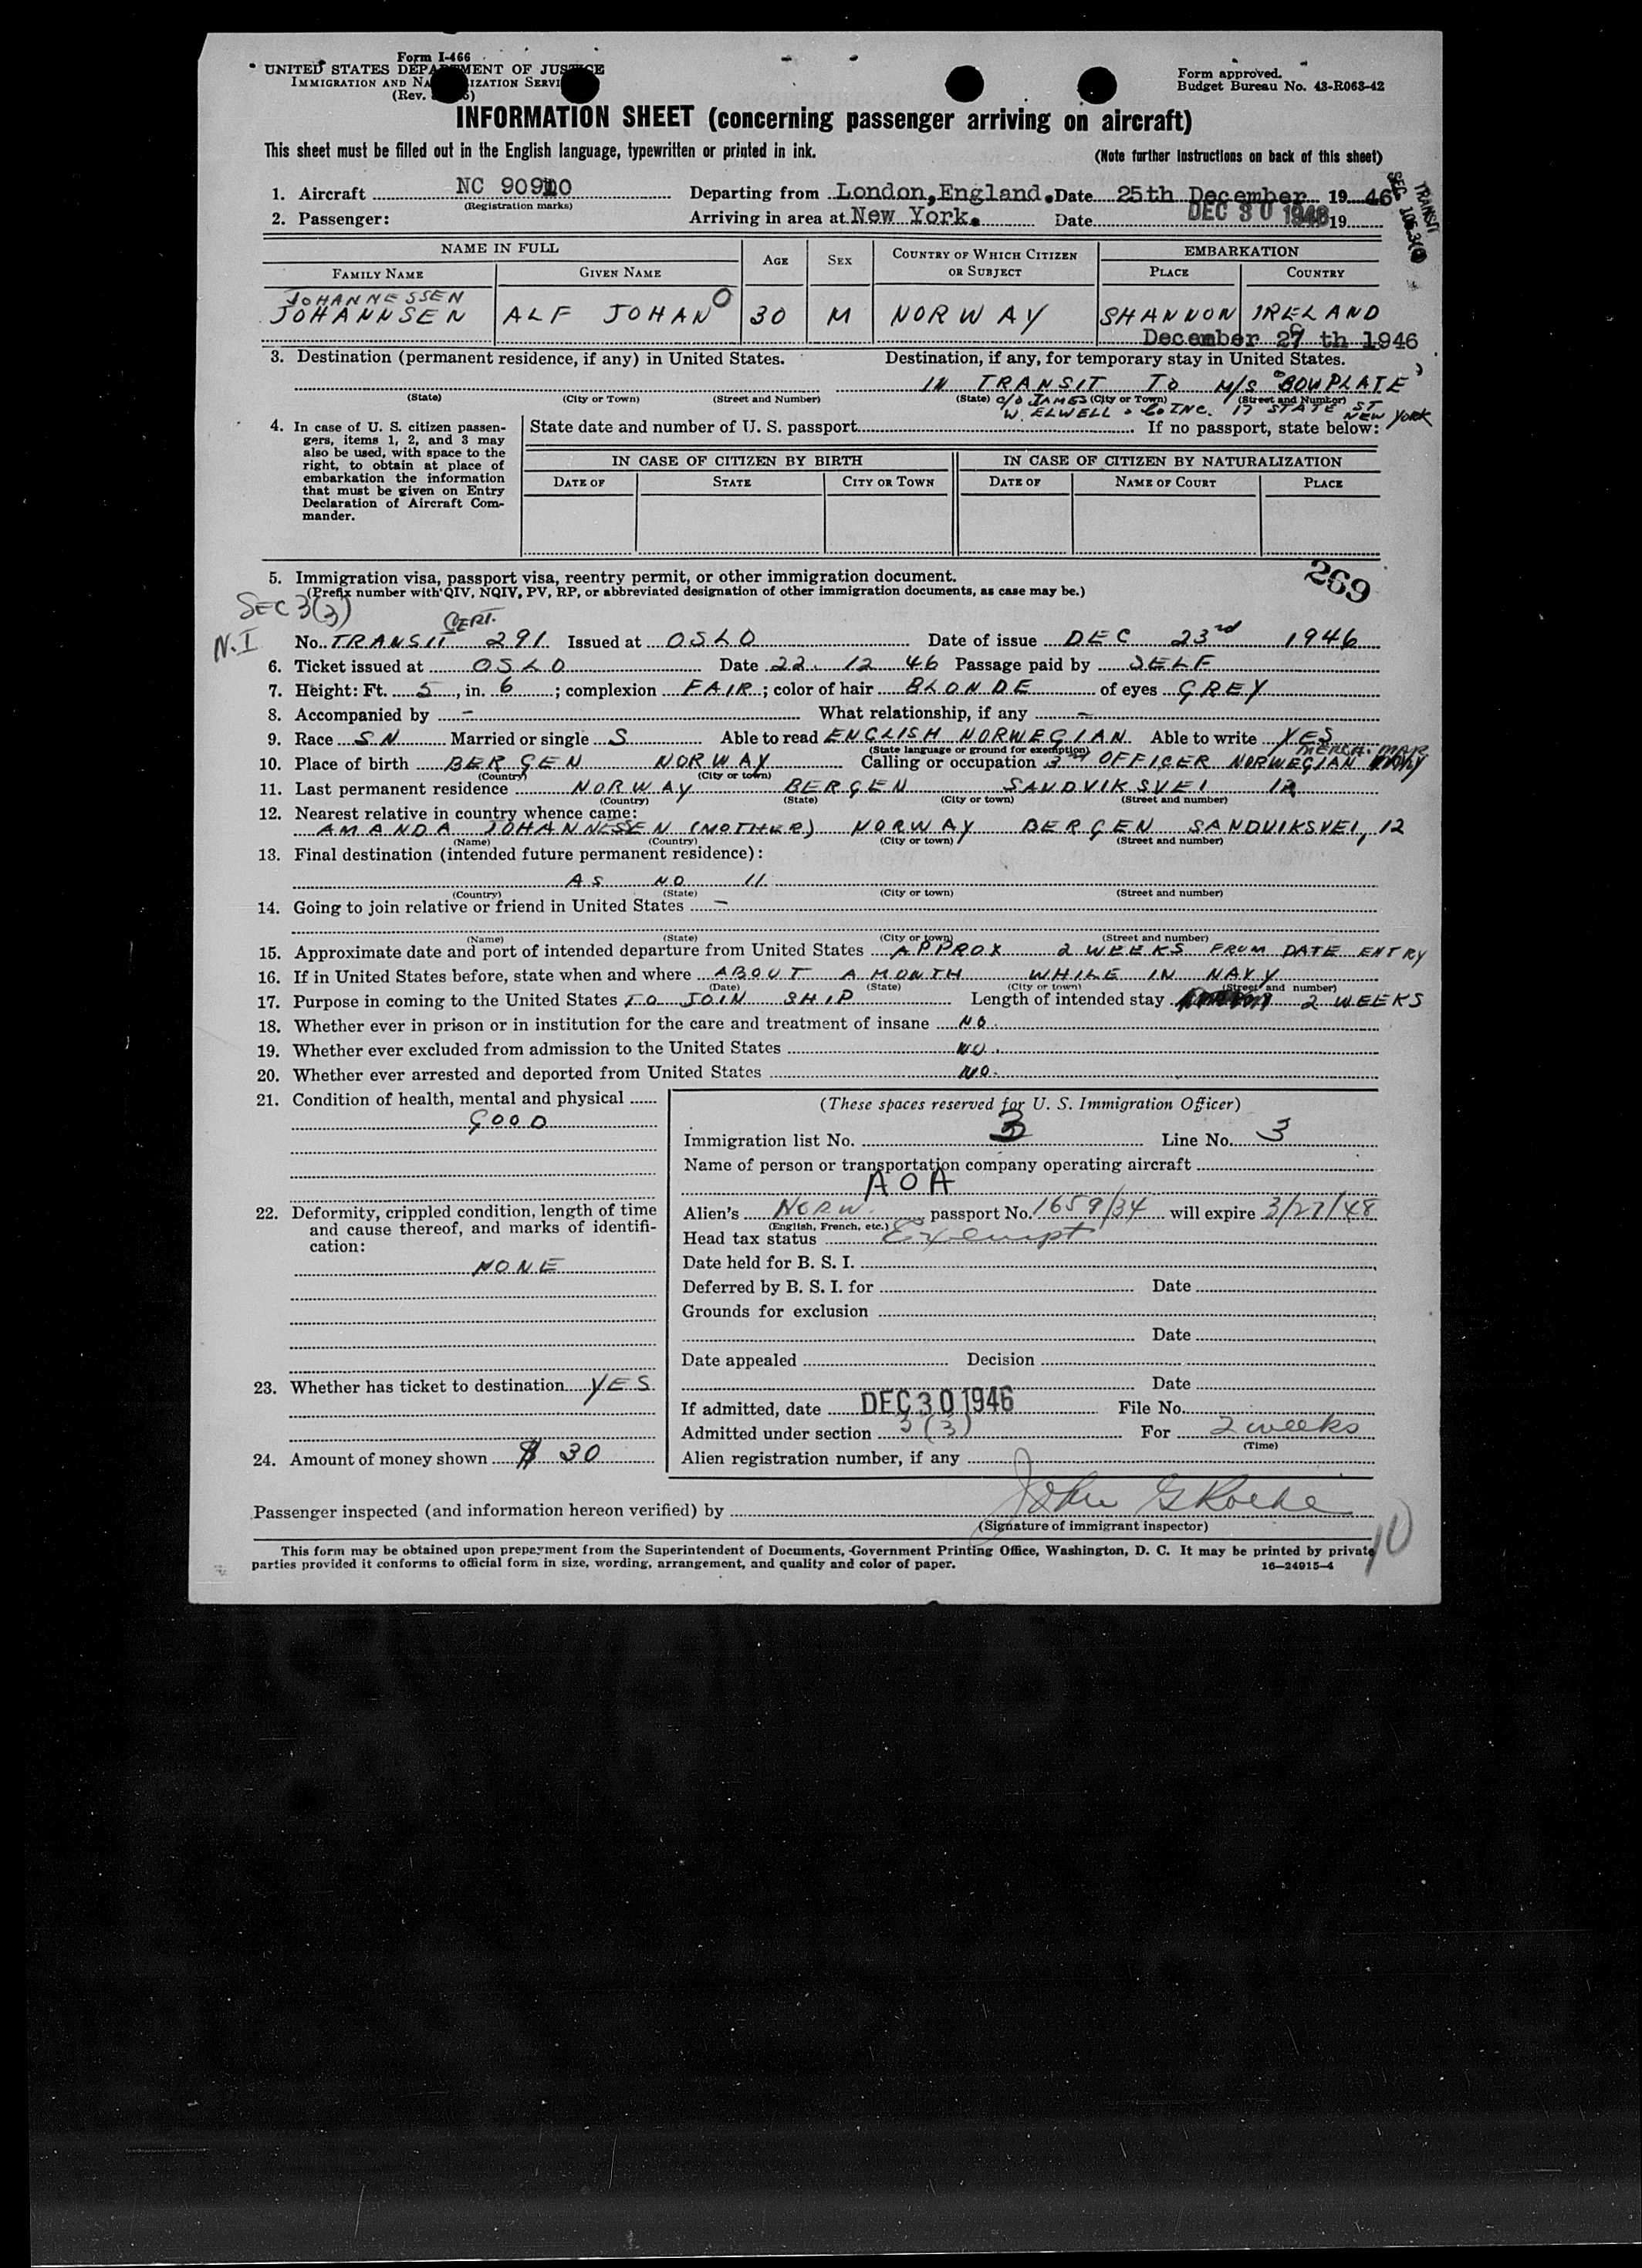 Form I-466
UNITED STATES DEPARTMENT OF JUSTICE
IMMIGRATION AND NATURALIZATION SERVICE
(Rev.
Form approved.
Budget Bureau No. 43-R063-42
INFORMATION SHEET (concerning passenger arriving on aircraft)
This sheet must be filled out in the English language, typewritten or printed in ink.
(Note further instructions on back of this sheet)
TRANSIT
1. Aircraft NC 90910 Departing from London, England. Date 25th December 1946
(Registration marks)
2. Passenger: Arriving in area at New York. Date DEC 30 1946 19
NAME IN FULL AGE SEX COUNTRY OF WHICH CITIZEN OR SUBJECT EMBARKATION
FAMILY NAME GIVEN NAME PLACE COUNTRY
JOHANNESSEN
JOHANNSEN ALF JOHAN O 30 M NORWAY SHANNON IRELAND
December 29 th 1946
3. Destination (permanent residence, if any) in United States. Destination, if any, for temporary stay in United States.
IN TRANSIT TO M/S "BOW PLATE"
(State) (City or Town) (Street and Number) (State) (City or Town) (Street and Number)
c/o JAMES
W. ELWELL & Co INC. 17 STATE ST
NEW YORK
4. In case of U. S. citizen passengers, items 1, 2, and 3 may also be used, with space to the right, to obtain at place of embarkation the information that must be given on Entry Declaration of Aircraft Commander.
State date and number of U. S. passport If no passport, state below:
IN CASE OF CITIZEN BY BIRTH IN CASE OF CITIZEN BY NATURALIZATION
DATE OF STATE CITY OR TOWN DATE OF NAME OF COURT PLACE
269
5. Immigration visa, passport visa, reentry permit, or other immigration document.
(Prefix number with QIV, NQIV, PV, RP, or abbreviated designation of other immigration documents, as case may be.)
SEC 3(3)
N.I
CERT.
No. TRANSIT 291 Issued at OSLO Date of issue DEC 23rd 1946
6. Ticket issued at OSLO Date 22. 12 46 Passage paid by SELF
7. Height: Ft. 5, in. 6; complexion FAIR; color of hair BLONDE of eyes GREY
8. Accompanied by - What relationship, if any -
9. Race SN Married or single S Able to read ENGLISH NORWEGIAN Able to write YES
(State language or ground for exemption)
MERCH. MAR
10. Place of birth BERGEN NORWAY Calling or occupation 3rd OFFICER NORWEGIAN
(Country) (City or town)
11. Last permanent residence NORWAY BERGEN SANDVIKSVEI 12
(Country) (State) (City or town) (Street and number)
12. Nearest relative in country whence came:
AMANDA JOHANNESSEN (MOTHER) NORWAY BERGEN SANDVIKSVEI, 12
(Name) (Country) (City or town) (Street and number)
13. Final destination (intended future permanent residence):
AS NO 11
(Country) (State) (City or town) (Street and number)
14. Going to join relative or friend in United States -
(Name) (State) (City or town) (Street and number)
15. Approximate date and port of intended departure from United States APPROX 2 WEEKS FROM DATE ENTRY
16. If in United States before, state when and where ABOUT A MONTH WHILE IN NAVY
(Date) (State) (City or town) (Street and number)
17. Purpose in coming to the United States TO JOIN SHIP Length of intended stay 2 WEEKS
18. Whether ever in prison or in institution for the care and treatment of insane NO.
19. Whether ever excluded from admission to the United States NO.
20. Whether ever arrested and deported from United States NO.
21. Condition of health, mental and physical
GOOD
22. Deformity, crippled condition, length of time and cause thereof, and marks of identification:
NONE
23. Whether has ticket to destination YES
24. Amount of money shown $ 30
(These spaces reserved for U. S. Immigration Officer)
Immigration list No. 3 Line No. 3
Name of person or transportation company operating aircraft
AOA
Alien's NORW. passport No. 1659/34 will expire 3/27/48
(English, French, etc.)
Head tax status Exempt
Date held for B. S. I.
Deferred by B. S. I. for Date
Grounds for exclusion
Date
Date appealed Decision
Date
If admitted, date DEC 30 1946 File No.
Admitted under section 3(3) For 2 weeks
(Time)
Alien registration number, if any
Passenger inspected (and information hereon verified) by John G Roche
(Signature of immigrant inspector)
10
This form may be obtained upon prepayment from the Superintendent of Documents, Government Printing Office, Washington, D. C. It may be printed by private
parties provided it conforms to official form in size, wording, arrangement, and quality and color of paper.
16—24915-4